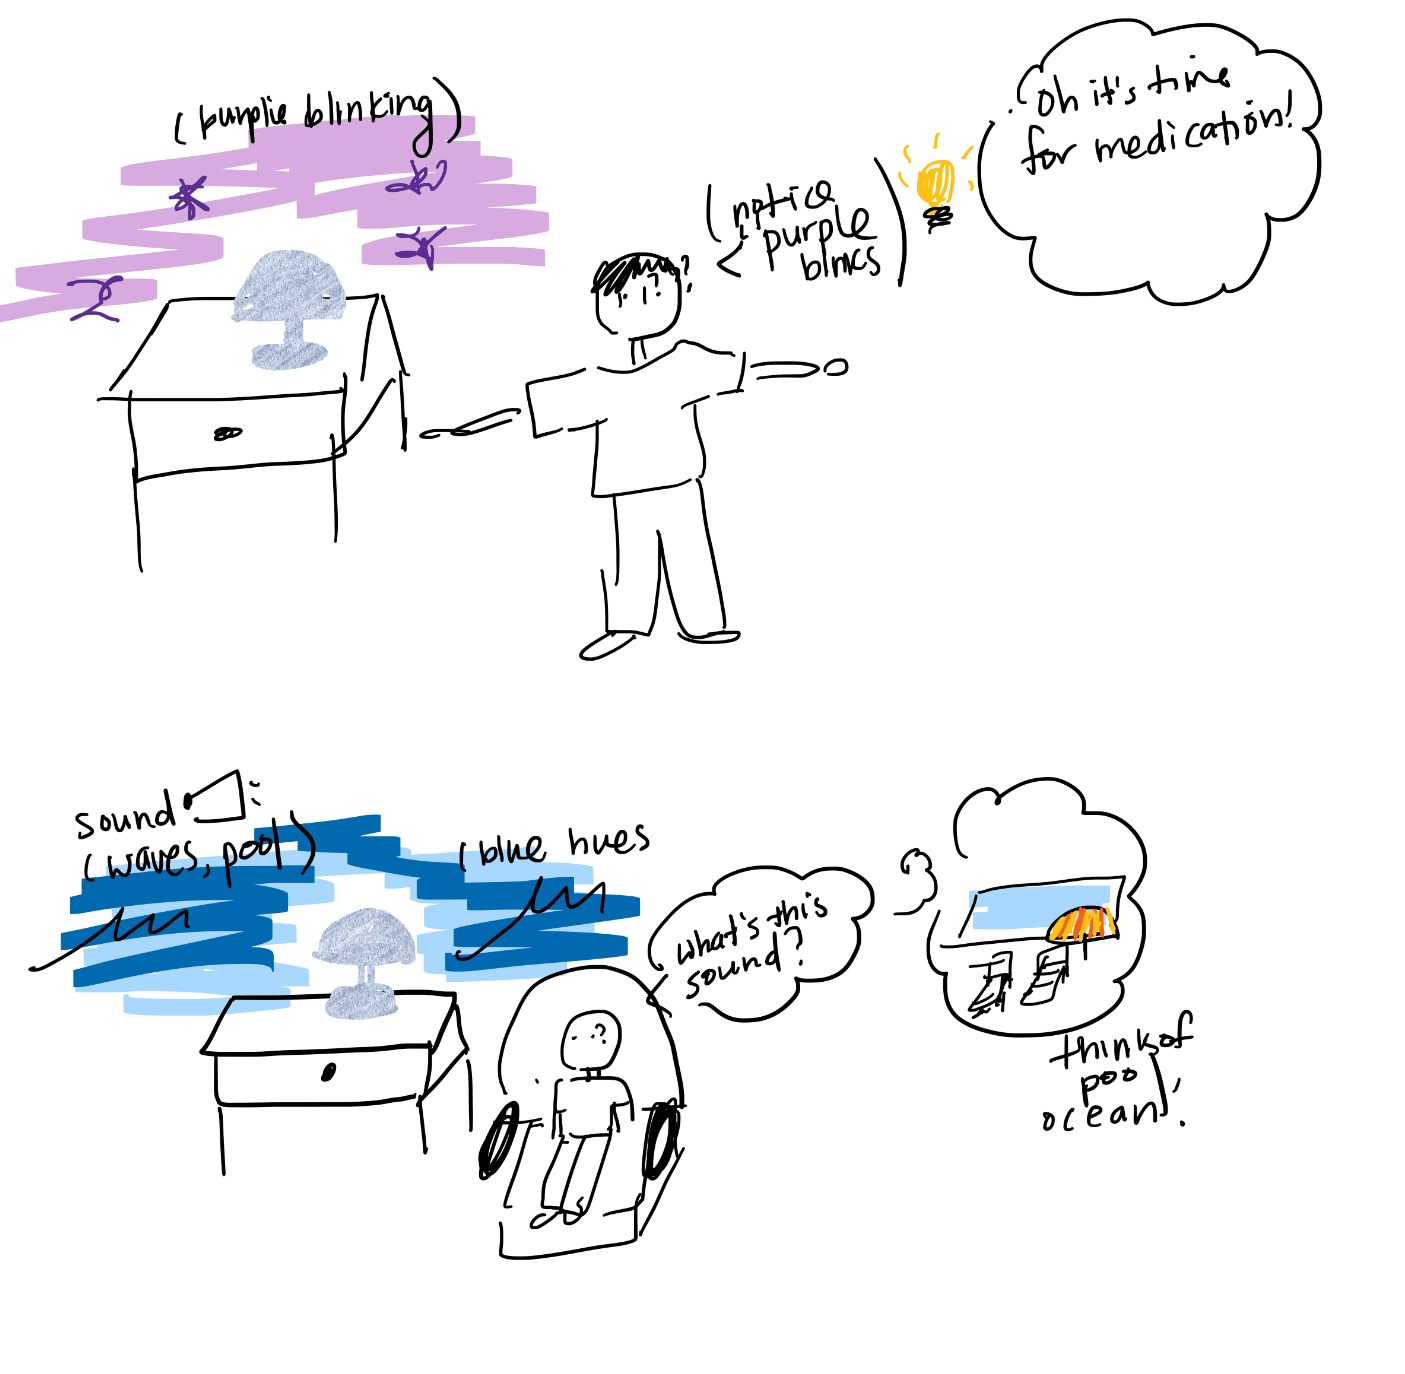 (purplie blinking)
(notice
purple
blincs)
oh it's time
for medication!
sound
(waves, pool)
(blue hues
what's this
sound?
think of
poo)
ocean!